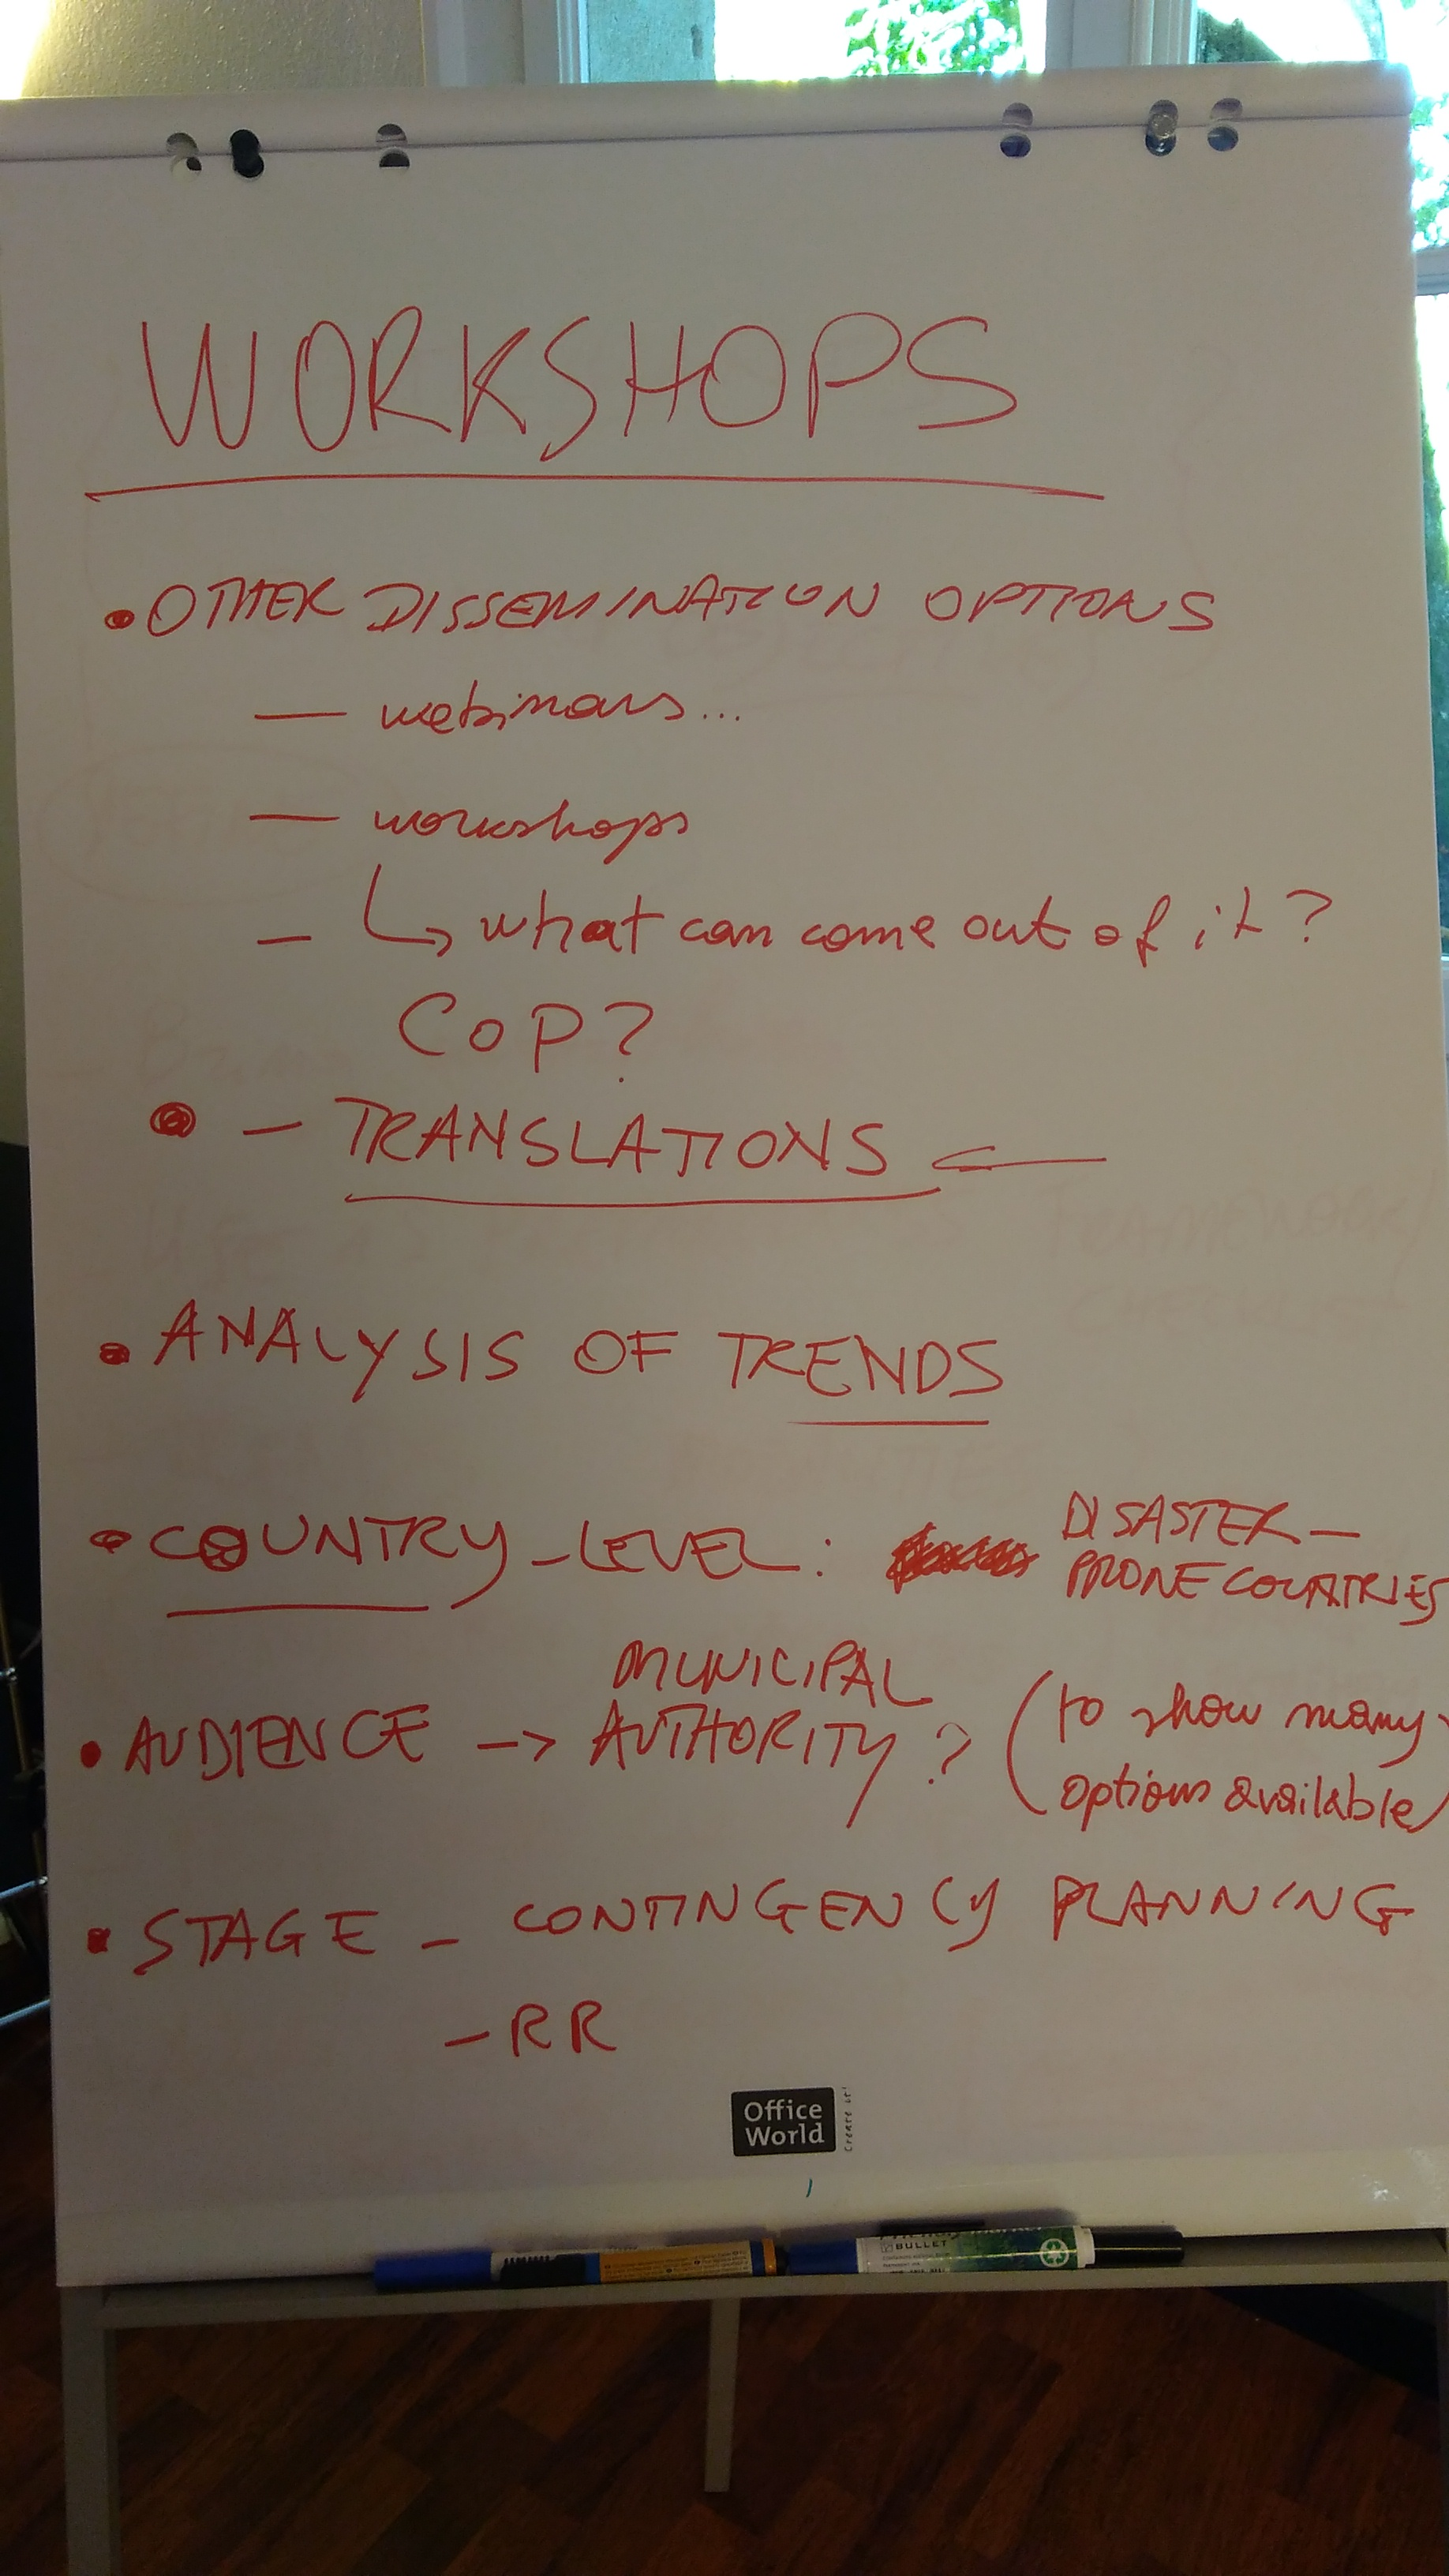 WORKSHOPS
• OTHER DISSEMINATION OPTIONS
— webinars...
— workshops
— ↳ what can come out of it?
CoP?
• — TRANSLATIONS ←
• ANALYSIS OF TRENDS
• COUNTRY-LEVEL: DISASTER-
PRONE COUNTRIES
MUNICIPAL
• AUDIENCE -> AUTHORITY? (to show many
options available)
• STAGE - CONTINGENCY PLANNING
- RR
Office
World
Create it!
BULLET